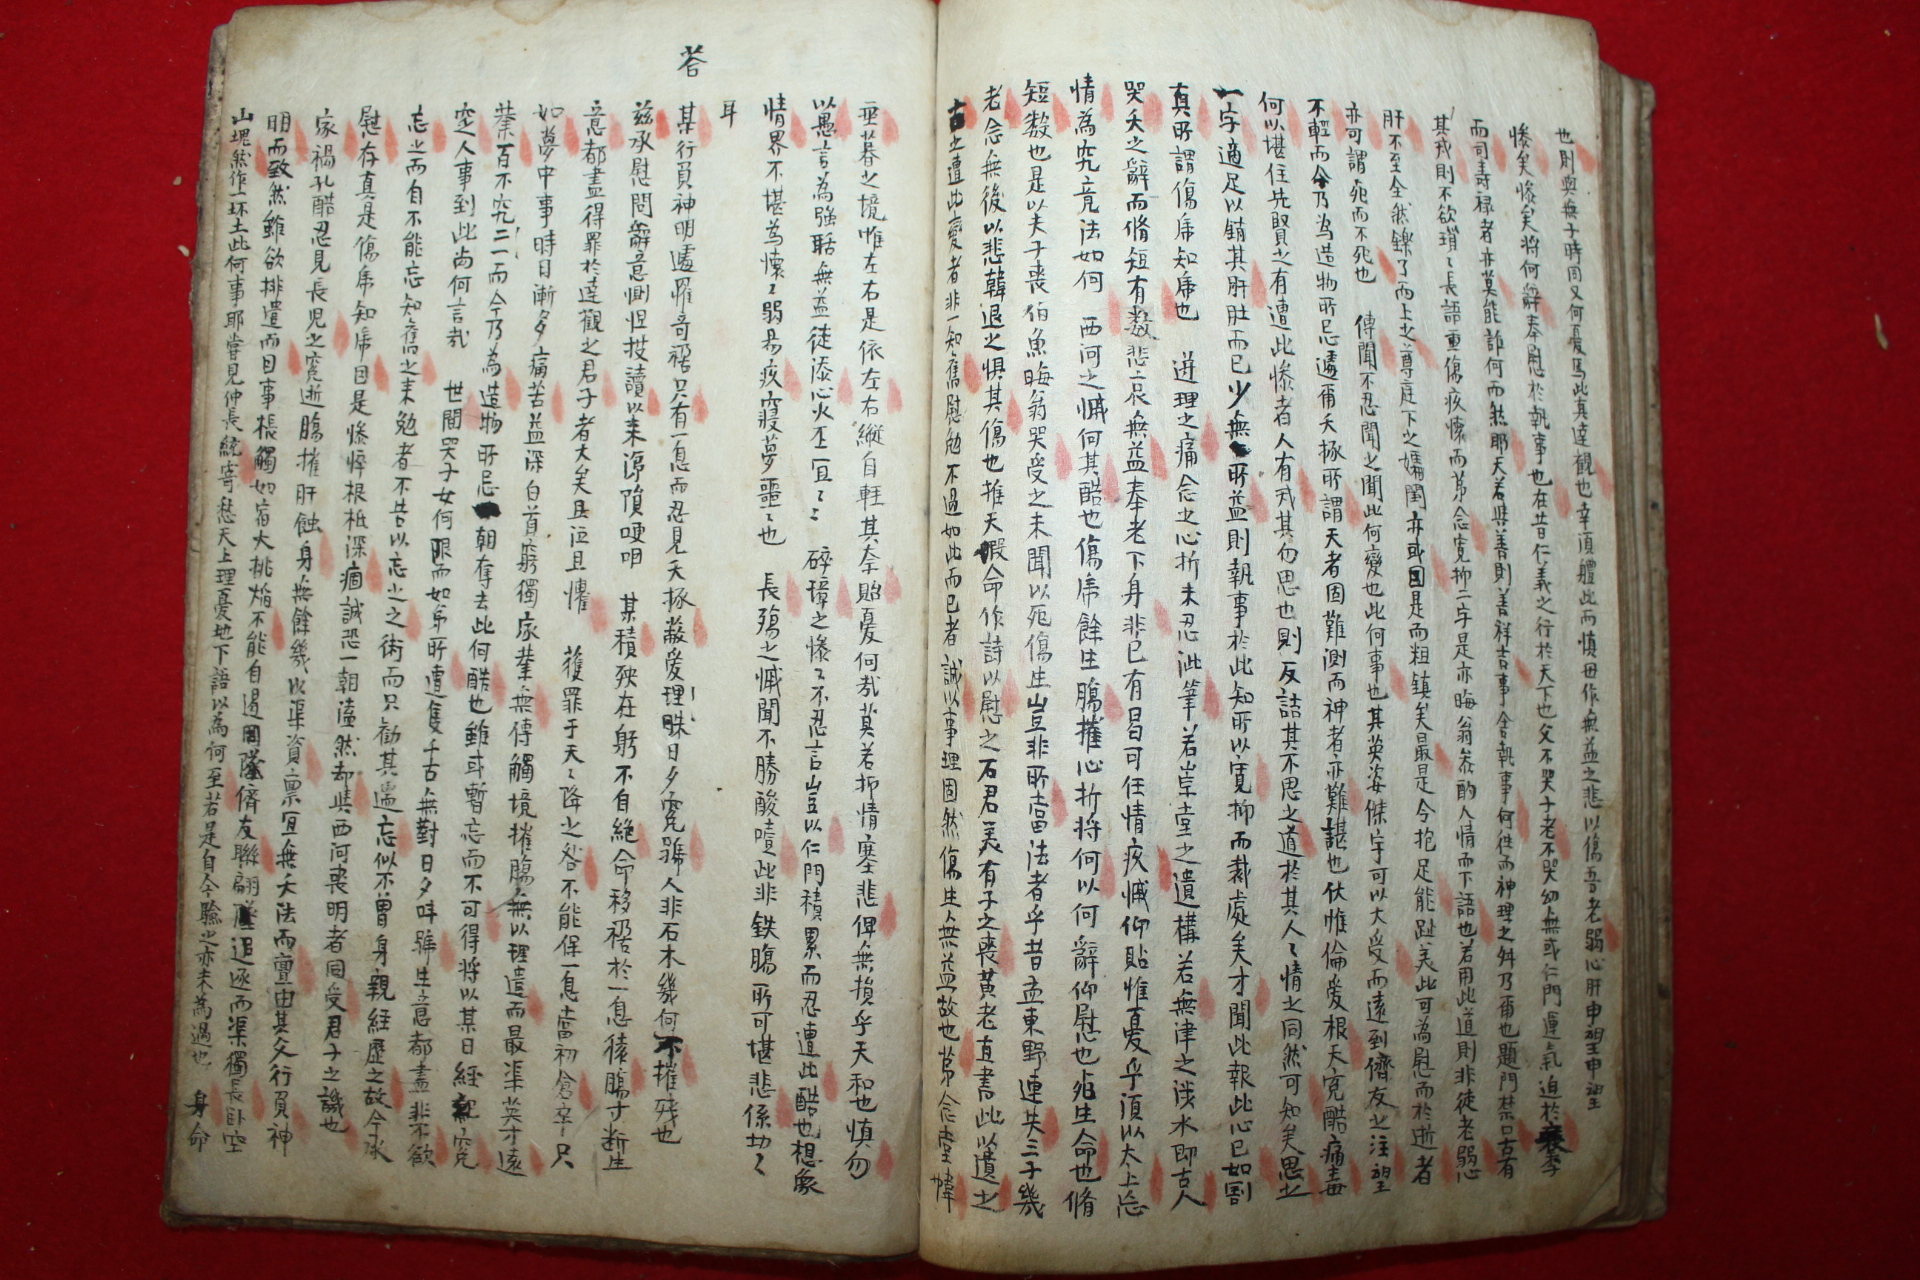 也則與無子時同又何憂焉此真達觀也幸須體此而慎毋作無益之悲以傷吾老弱心肝申望申望
慘矣慘矣將何辭奉慰於執事也在昔仁義之行於天下也父不哭子老不哭幼無或仁門運氣迫於
而司壽祿者亦莫能誰何而然耶天若與善則善祥吉事舍執事何往而神理之舛乃爾也題門禁口古有
其戒則不欲瑣〻長語重傷疚懷而第念寬抑二字是亦晦翁酌人情而下語也若用此道則非徒老弱心
肝不至全然鑠了而上之尊庭下之孀閨亦或因是而粗鎮矣最是今抱足能趾美此可為慰而於逝者
亦可謂死而不死也 傳聞不忍聞之聞此何變也此何事也其英姿傑宇可以大受而遠到儕友之注望
不輕而今乃為造物所忌遽爾夭椓所謂天者固難測而神者亦難諶也伏惟倫愛根天寃酷痛毒
何以堪住先賢之有遭此慘者人有戒其勿思也則反詰其不思之道於其人〻情之同然可知矣思之
一字適足以銷其肝肚而已少無所益則執事於此知所以寬抑而裁處矣才聞此報此心已如割
真所謂傷虎知虎也 逆理之痛念之心折未忍泚筆若崇堂之遺構若無津之涉水即古人
哭夭之辭而脩短有數悲哀無益奉老下身非已有曷可任情疚慽仰貽惟憂乎須以太上忘
情為究竟法如何 西河之慽何其酷也傷虎餘生腸摧心折將何以何辭仰慰也死生命也脩
短數也是以夫子喪伯魚晦翁哭受之未聞以死傷生豈非所當法者乎昔孟東野連失三子幾
老念無後以悲韓退之惧其傷也推天假命作詩以慰之石君美有子之喪黃老直書此以遺之
古之遭此變者非一知舊慰勉不過如此而已者誠以事理固然傷生無益故也第念萱幃
垂暮之境惟左右是依左右縱自輕其奈貽憂何哉莫若抑情塞悲俾無損乎天和也慎勿
以愚言為強聒無益徒添心火丕宜〻 碎璋之慘〻不忍言豈以仁門積累而忍遭此酷也想象
情界不堪為懷〻弱易疚寢夢噩〻也 長殤之慽聞不勝酸噎此非鉄腸所可堪悲係切〻
耳
答
某行負神明遽罹奇禍只有一息而忍見夭椓蔽愛理昧日夕寃號人非石木幾何不摧殘也
茲承慰問辭意惻怛披讀以來涕隕哽咽 某積殃在躬不自絶命移禍於一息猿腸寸斷生
意都盡得罪於達觀之君子者大矣且泣且懼 獲罪于天〻降之咎不能保一息當初倉卒只
如夢中事時日漸多痛苦益深白首窮獨家業無傳觸境摧腸無以理遣而最渠英才遠
業百不究二一而今乃為造物所忌一朝奪去此何酷也雖或暫忘而不可得將以某日經紀窆
空人事到此尚何言哉 世間哭子女何限而如弟所遭隻千古無對日夕呌號生意都盡非不欲
忘之而自不能忘知舊之來勉者不告以忘之之術而只勸其遄忘似不曾身親經歷之故今承
慰存真是傷虎知虎因是慘悴根柢深痼誠恐一朝溘然却與西河喪明者同受君子之譏也
家禍孔酷忍見長児之寃逝腸摧肝蝕身無餘幾以渠資禀宜無夭法而亶由其父行負神
明而致然雖欲排遣而因事棖觸如宿火挑焰不能自遏同隊儕友聯翩追逐而渠獨長卧空
山塊然作一抔土此何事耶嘗見仲長統寄愁天上埋憂地下語以為何至若是自今驗之亦未為過也 身命